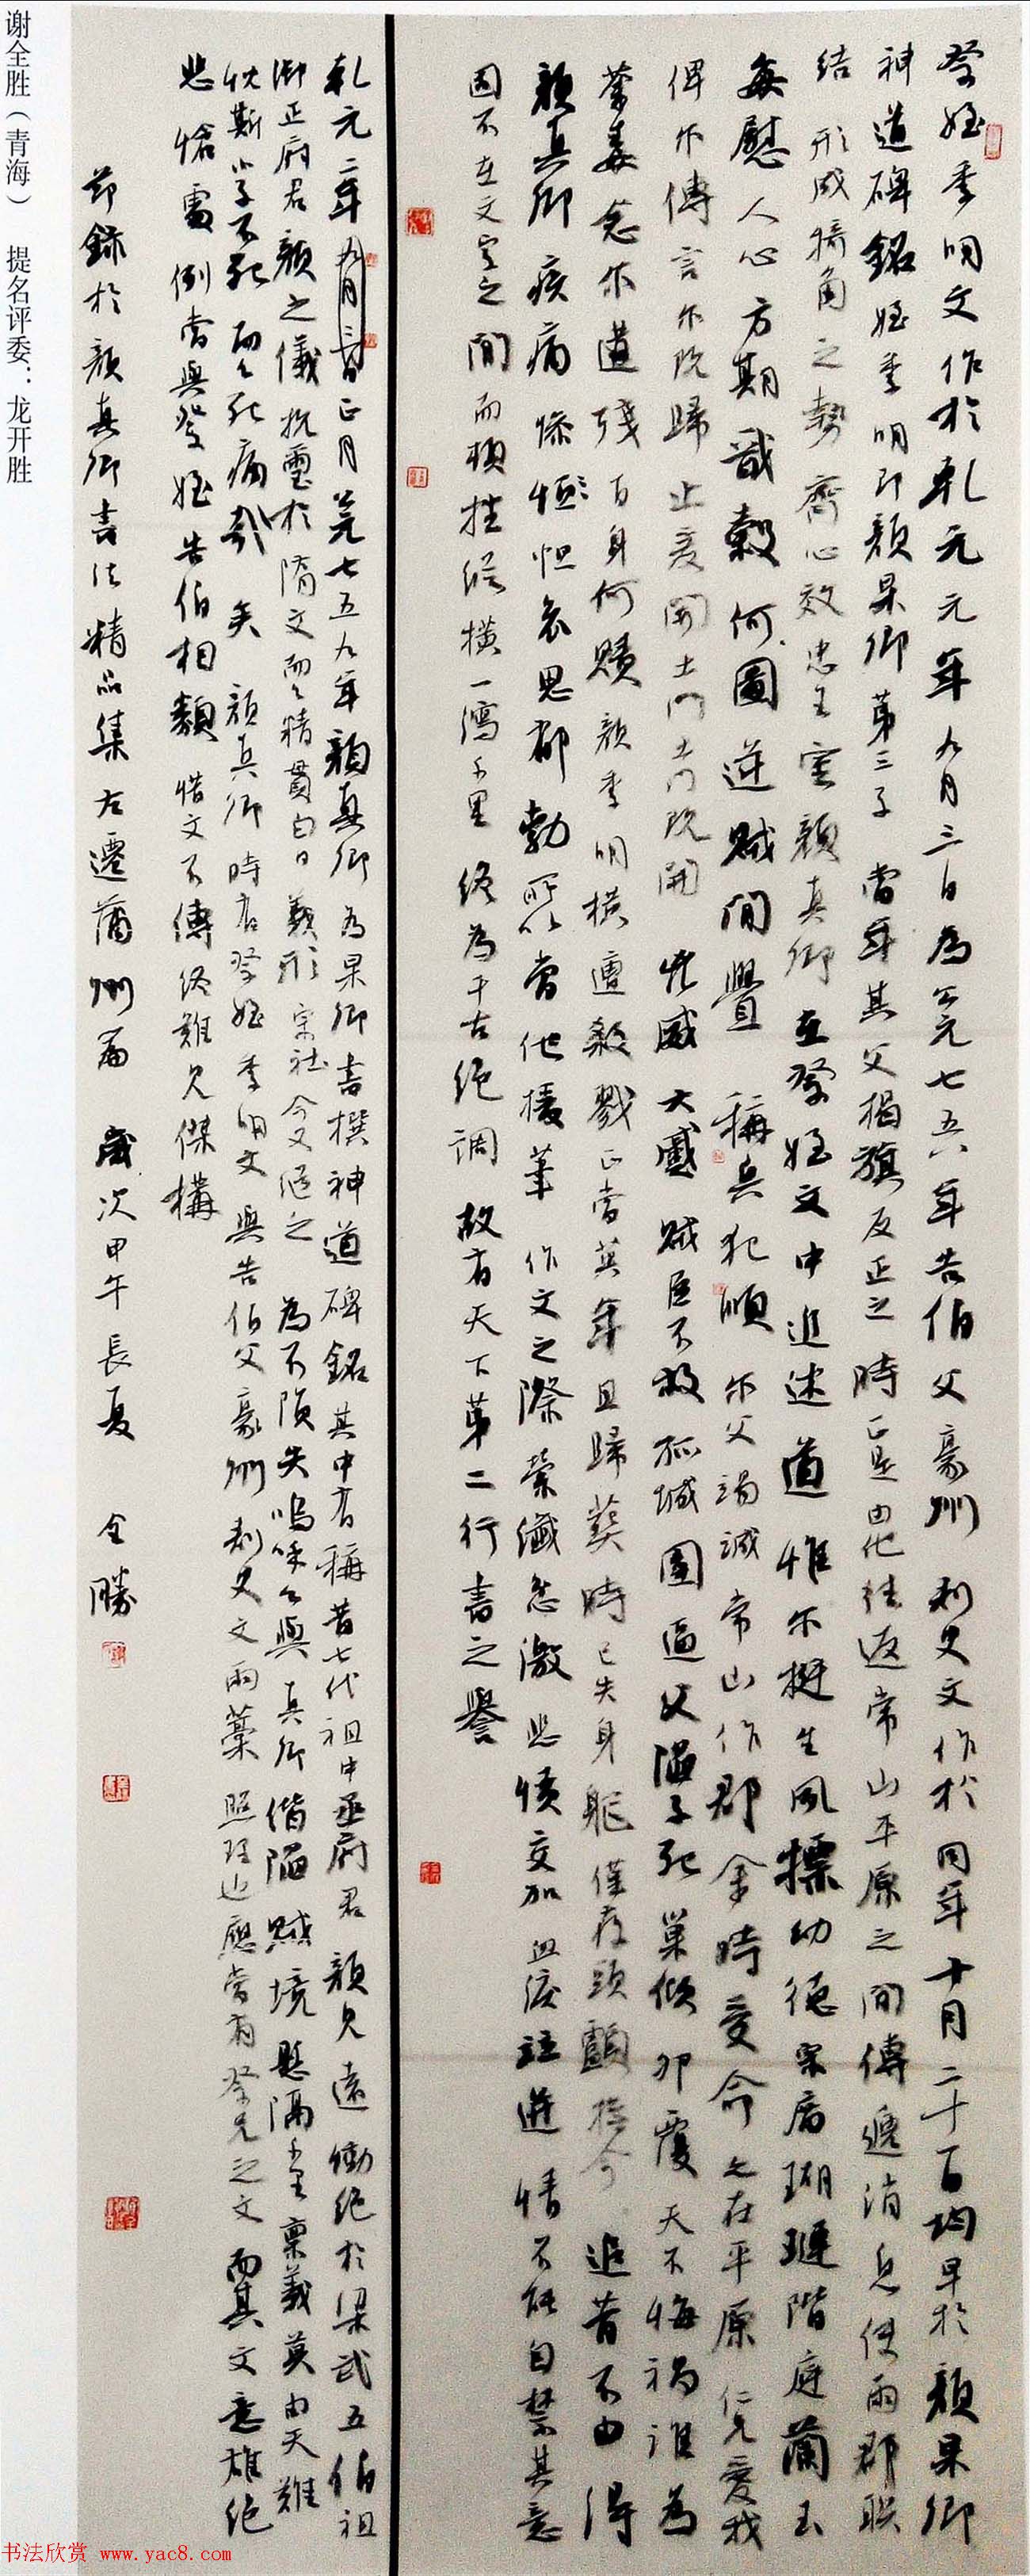 祭姪季明文作於乾元元年九月三日為公元七五八年告伯父豪州刺史文作於同年十月二十一日均早於顏杲卿
神道碑銘姪季明即顏杲卿第三子當年其父揭旗反正之時正是由他往返常山平原之間傳遞消息使兩郡联
結形成犄角之勢齊心效忠王室顏真卿在祭姪文中追述道惟尔挺生夙標幼德宗廟瑚璉階庭蘭玉
每慰人心方期戩穀何圖逆賊閒釁稱兵犯順尔父竭誠常山作郡余時受命亦在平原仁兄愛我
俾尔傳言尔既歸止爰開土門土門既開凶威大蹙賊臣不救孤城圍逼父陷子死巢傾卵覆天不悔禍誰為
荼毒念尔遘殘百身何贖顏季明橫遭殺戮正當英年且歸葬時已失身軀僅存頭顱撫今追昔不由得
顏真卿疾痛慘怛哀思鬱勃所以當他援筆作文之際縈纖忿激悲憤交加血淚迸情不能自禁其意
固不在文字之間而頓挫縱橫一瀉千里終為千古絕調故有天下第二行書之譽
乾元二年九月三日正月公元七五九年顏真卿為杲卿書撰神道碑銘其中有稱昔七代祖中丞府君顏見遠慟絕於梁武五伯祖
御正府君顏之儀抗璽於隋文而精貫白日義形宗社今又繼之為不隕失嗚呼公與真卿偕陷賊境懸隔千里禀義莫由天難
忱斯小子不死而公死痛哉矣顏真卿時有祭姪季明文與告伯父豪州刺史文兩藁照理也應當有祭兄之文而其文意雄絕
悲愴處例當與祭姪告伯相類惜文不傳終難見傑構
節錄於顏真卿書法精品集左遷蒲州篇歲次甲午長夏全勝
谢全胜（青海） 提名评委：龙开胜
书法欣赏 www.yac8.com